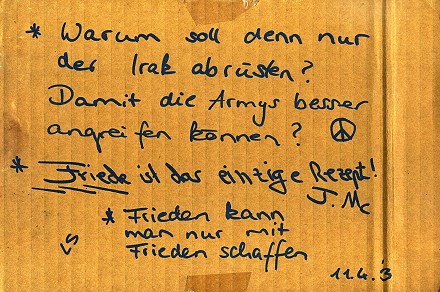 * Warum soll denn nur
der Irak abrüsten?
Damit die Armys besser
angreifen können?
* Friede ist das einzige Rezept!
J. Mc
* Frieden kann
man nur mit
Frieden schaffen
11.4.'3